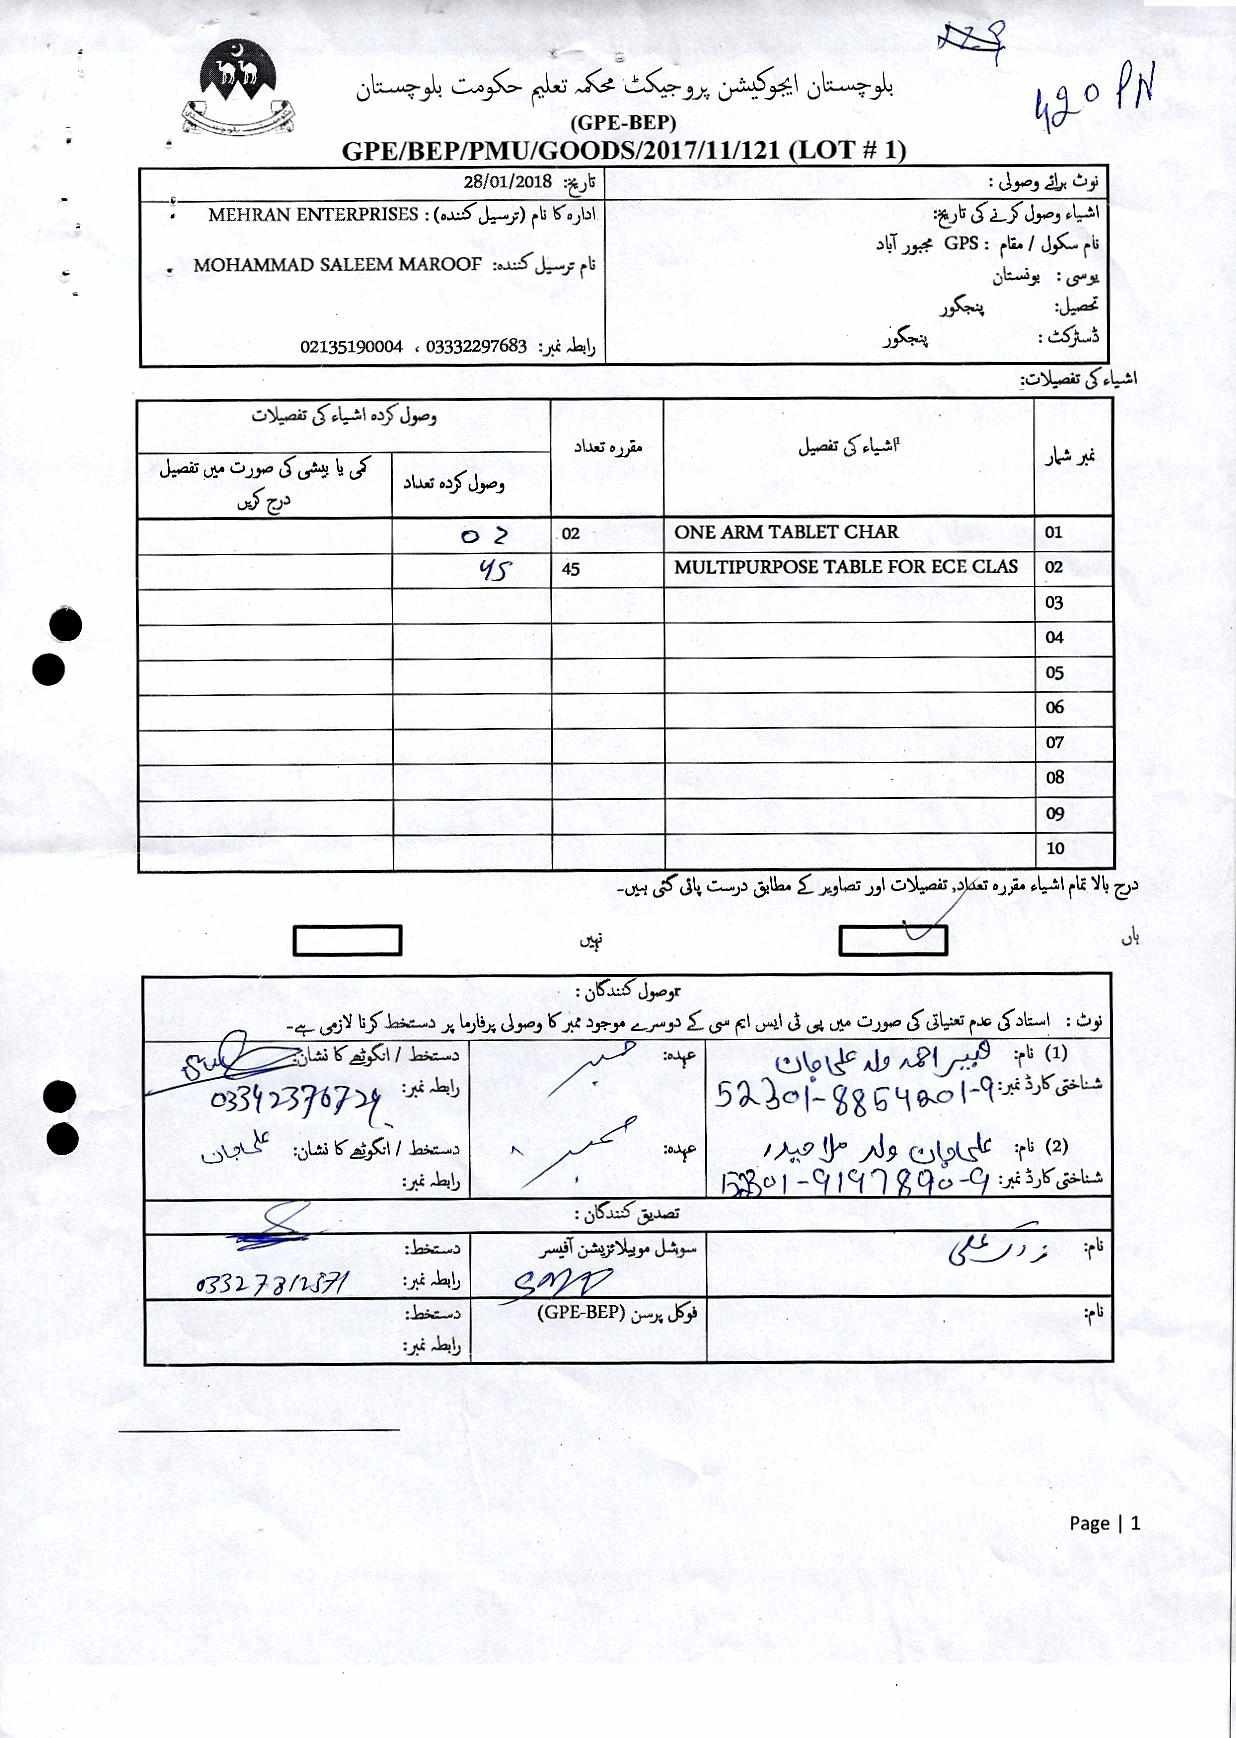 420 PN
بلوچستان ایجوکیشن پروجیکٹ محکمہ تعلیم حکومت بلوچستان
(GPE-BEP)
GPE/BEP/PMU/GOODS/2017/11/121 (LOT # 1)
نوٹ برائے وصولی :
اشیاء وصول کرنے کی تاریخ:
نام سکول / مقام : GPS مجبور آباد
یوسی : بونستان
تحصیل: پنجگور
ڈسٹرکٹ : پنجگور
تاریخ: 28/01/2018
ادارہ کا نام (ترسیل کنندہ) : MEHRAN ENTERPRISES
نام ترسیل کنندہ: MOHAMMAD SALEEM MAROOF
رابطہ نمبر: 03332297683 ، 02135190004
اشیاء کی تفصیلات:
نمبر شمار اشیاء کی تفصیل مقررہ تعداد وصول کردہ اشیاء کی تفصیلات
وصول کردہ تعداد کمی یا بیشی کی صورت میں تفصیل درج کریں
01 ONE ARM TABLET CHAR 02 02
02 MULTIPURPOSE TABLE FOR ECE CLAS 45 45
03
04
05
06
07
08
09
10
درج بالا تمام اشیاء مقررہ تعداد, تفصیلات اور تصاویر کے مطابق درست پائی گئی ہیں۔
ہاں نہیں
وصول کنندگان :
نوٹ : استاد کی عدم تعنیاتی کی صورت میں پی ٹی ایس ایم سی کے دوسرے موجود ممبر کا وصولی پرفارما پر دستخط کرنا لازمی ہے۔
(1) نام: احمد ولد علی جان عہدہ: ممبر دستخط / انگوٹھے کا نشان:
شناختی کارڈ نمبر: 52301-8854201-9 رابطہ نمبر: 03342376729
(2) نام: علی جان ولد ملا حیدر عہدہ: ممبر دستخط / انگوٹھے کا نشان: علی جان
شناختی کارڈ نمبر: 52301-9197890-9 رابطہ نمبر:
تصدیق کنندگان :
نام: سوشل موبیلائزیشن آفیسر دستخط:
رابطہ نمبر: 03327812371
نام: فوکل پرسن (GPE-BEP) دستخط:
رابطہ نمبر:
Page | 1